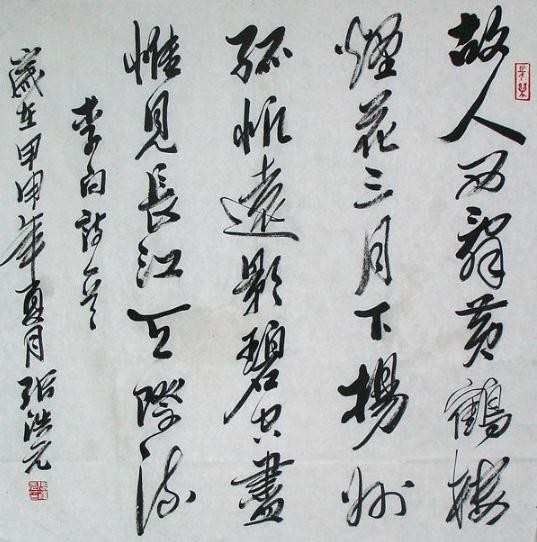 故人西辭黄鶴樓
煙花三月下揚州
孤帆遠影碧空盡
惟見長江天際流
李白詩一首
歲在甲申年夏月張浩元